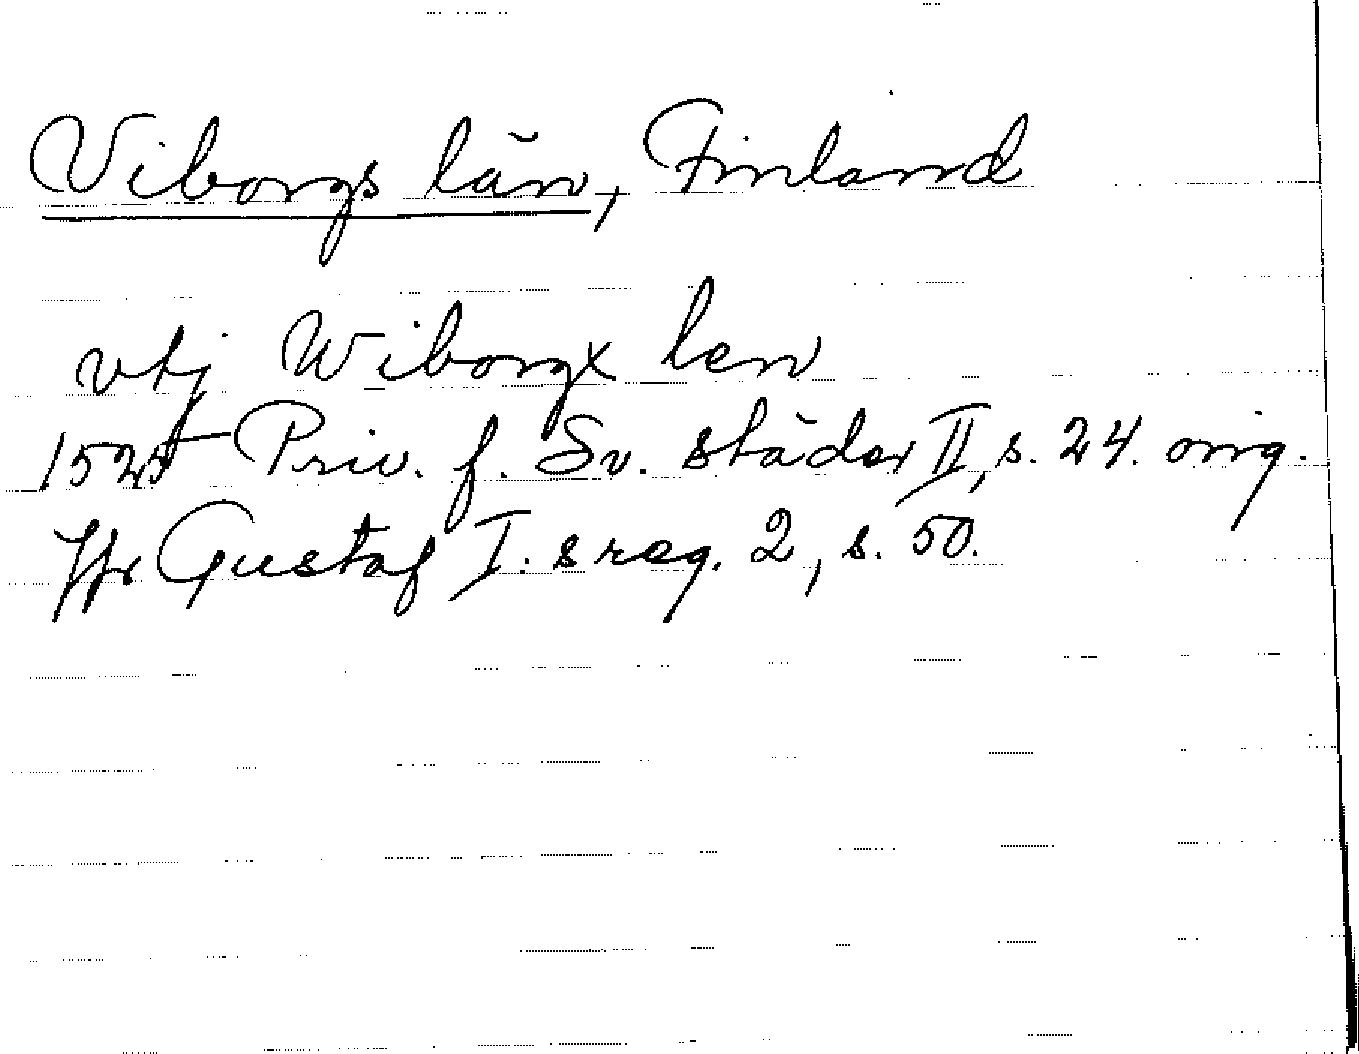 Viborgs län, Finland
vtj Wiborgx len
1525 Priv. f. Sv. städer II, s. 24. orig.
Jfr Gustaf I:s reg. 2, s. 50.